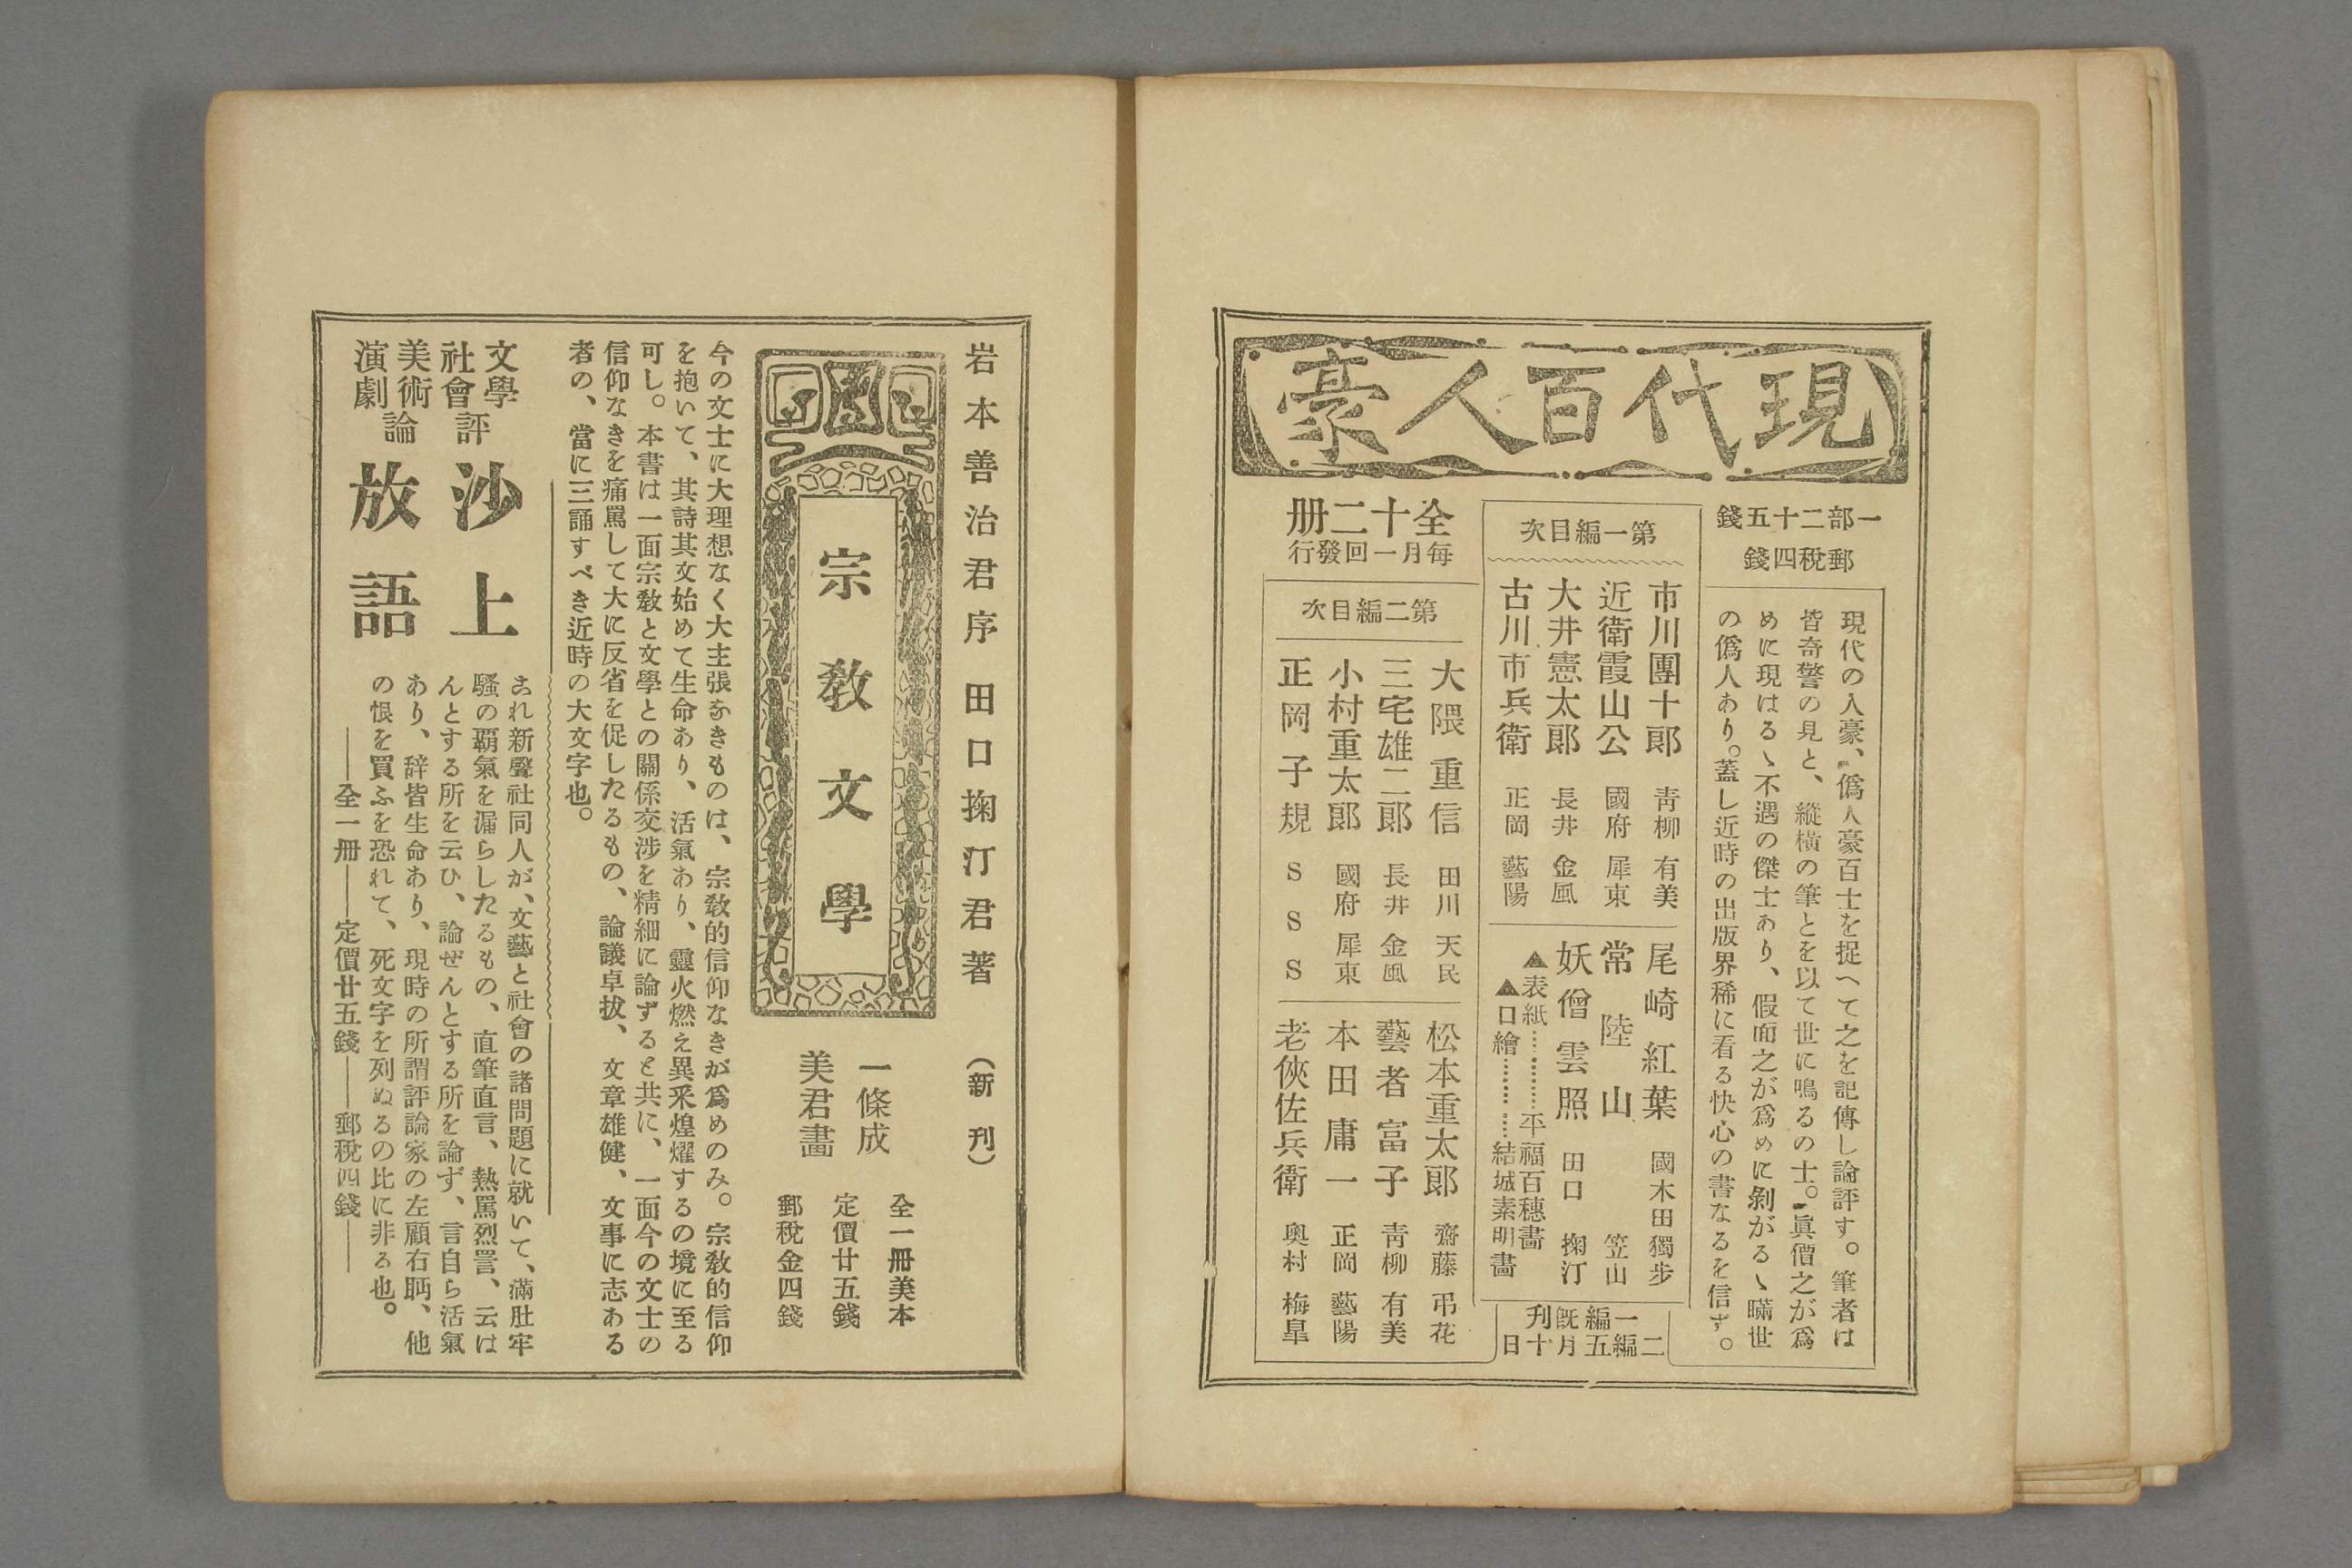 現代百人豪
一部二十五錢
郵税四錢
現代の人豪、僞人豪百士を捉へて之を記傳し論評す。筆者は
皆奇警の見と、縱橫の筆とを以て世に鳴るの士。眞價之が爲
めに現はるゝ不遇の傑士あり、假面之が爲めに剝がるゝ瞞世
の僞人あり。蓋し近時の出版界稀に看る快心の書なるを信ず。
第一編目次
市川團十郎 靑柳有美
近衛霞山公 國府犀東
大井憲太郎 長井金風
古川市兵衛 正岡藝陽
尾崎紅葉 國木田獨步
常陸山 笠山
妖僧雲照 田口掬汀
▲表紙…………平福百穗畵
▲口繪…………結城素明畵
一編既刊
二編五月十日
全十二册
每月一回發行
第二編目次
大隈重信 田川天民
三宅雄二郎 長井金風
小村重太郎 國府犀東
正岡子規 SSS
松本重太郎 齋藤弔花
藝者富子 靑柳有美
本田庸一 正岡藝陽
老俠佐兵衛 奧村梅皐
岩本善治君序 田口掬汀君著 (新刊)
宗敎文學
一條成
美君畵
全一冊美本
定價廿五錢
郵税金四錢
今の文士に大理想なく大主張なきものは、宗敎的信仰なきが爲めのみ。宗敎的信仰
を抱いて、其詩其文始めて生命あり、活氣あり、靈火燃え異釆煌燿するの境に至る
可し。本書は一面宗敎と文學との關係交涉を精細に論ずると共に、一面今の文士の
信仰なきを痛罵して大に反省を促したるもの、論議卓拔、文章雄健、文事に志ある
者の、當に三誦すべき近時の大文字也。
文學
社會評
美術論
演劇
沙上
放語
これ新聲社同人が、文藝と社會の諸問題に就いて、滿肚牢
騷の覇氣を漏らしたるもの、直筆直言、熱罵烈詈、云は
んとする所を云ひ、論ぜんとする所を論ず、言自ら活氣
あり、辞皆生命あり、現時の所謂評論家の左顧右眄、他
の恨を買ふを恐れて、死文字を列ぬるの比に非る也。
――全一冊――定價廿五錢――郵税四錢――